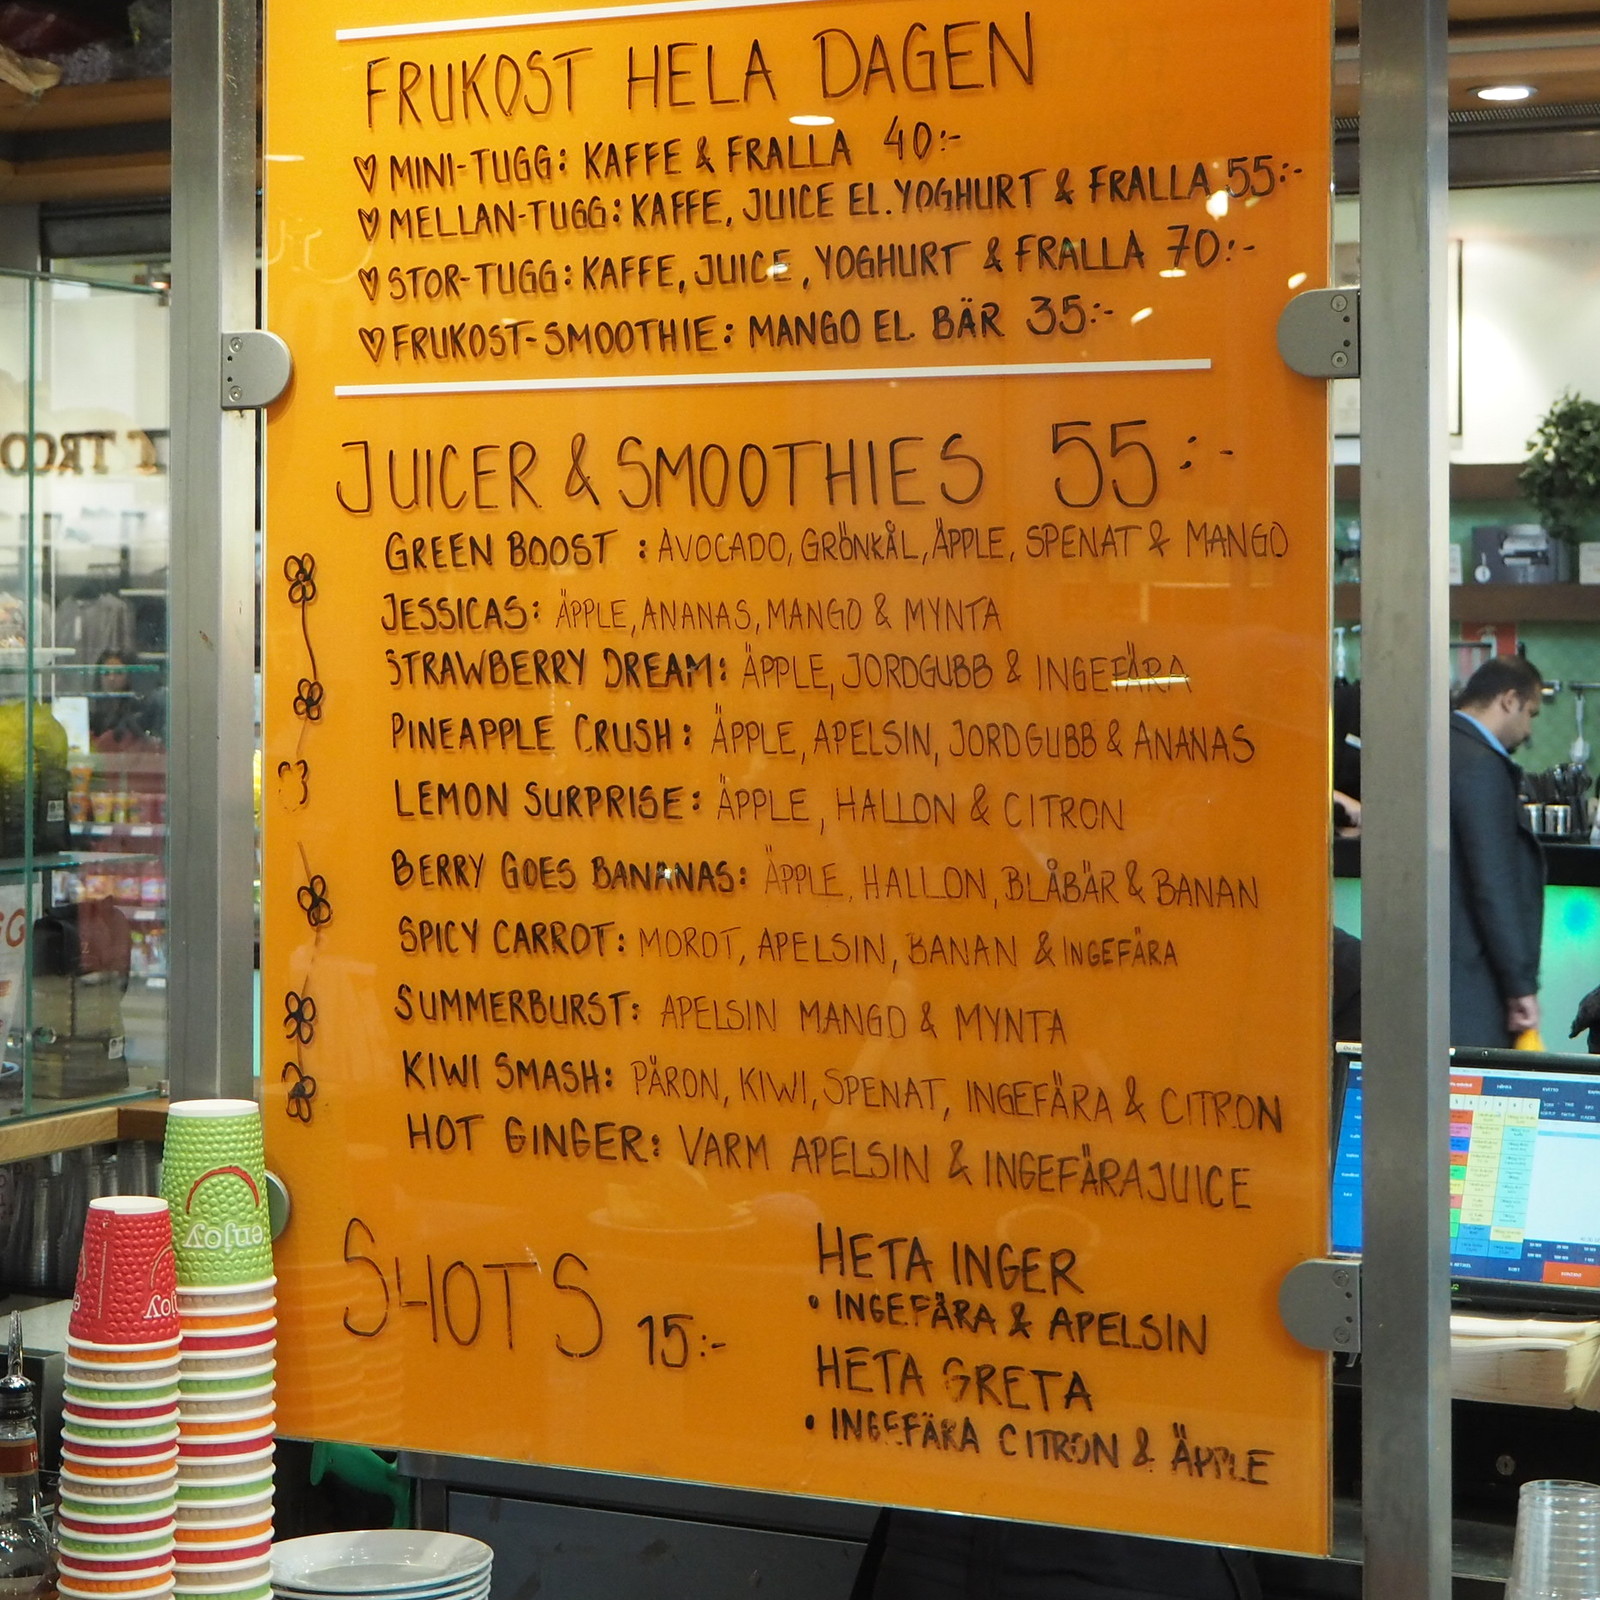 FRUKOST HELA DAGEN
♡ MINI-TUGG: KAFFE & FRALLA 40:-
♡ MELLAN-TUGG: KAFFE, JUICE EL. YOGHURT & FRALLA 55:-
♡ STOR-TUGG: KAFFE, JUICE, YOGHURT & FRALLA 70:-
♡ FRUKOST-SMOOTHIE: MANGO EL. BÄR 35:-
JUICER & SMOOTHIES 55:-
GREEN BOOST : AVOCADO, GRÖNKÅL, ÄPPLE, SPENAT & MANGO
JESSICAS: ÄPPLE, ANANAS, MANGO & MYNTA
STRAWBERRY DREAM: ÄPPLE, JORDGUBB & INGEFÄRA
PINEAPPLE CRUSH: ÄPPLE, APELSIN, JORDGUBB & ANANAS
LEMON SURPRISE: ÄPPLE, HALLON & CITRON
BERRY GOES BANANAS: ÄPPLE, HALLON, BLÅBÄR & BANAN
SPICY CARROT: MOROT, APELSIN, BANAN & INGEFÄRA
SUMMERBURST: APELSIN MANGO & MYNTA
KIWI SMASH: PÄRON, KIWI, SPENAT, INGEFÄRA & CITRON
HOT GINGER: VARM APELSIN & INGEFÄRAJUICE
SHOTS 15:-
HETA INGER
• INGEFÄRA & APELSIN
HETA GRETA
• INGEFÄRA CITRON & ÄPPLE
enjoy